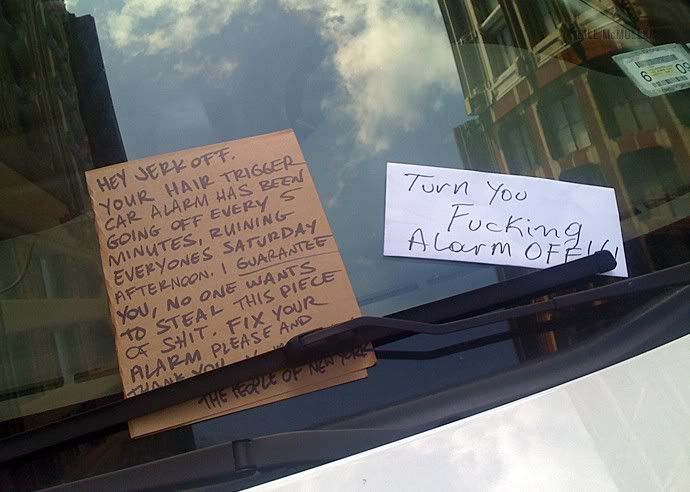 HEY JERK OFF.
YOUR HAIR TRIGGER
CAR ALARM HAS BEEN
GOING OFF EVERY 5
MINUTES, RUINING
EVERYONES SATURDAY
AFTERNOON. I GUARANTEE
YOU, NO ONE WANTS
TO STEAL THIS PIECE
OF SHIT. FIX YOUR
ALARM PLEASE AND
THANK YOU
THE PEOPLE OF NEW YORK
Turn You
Fucking
Alarm OFF!!
6 09